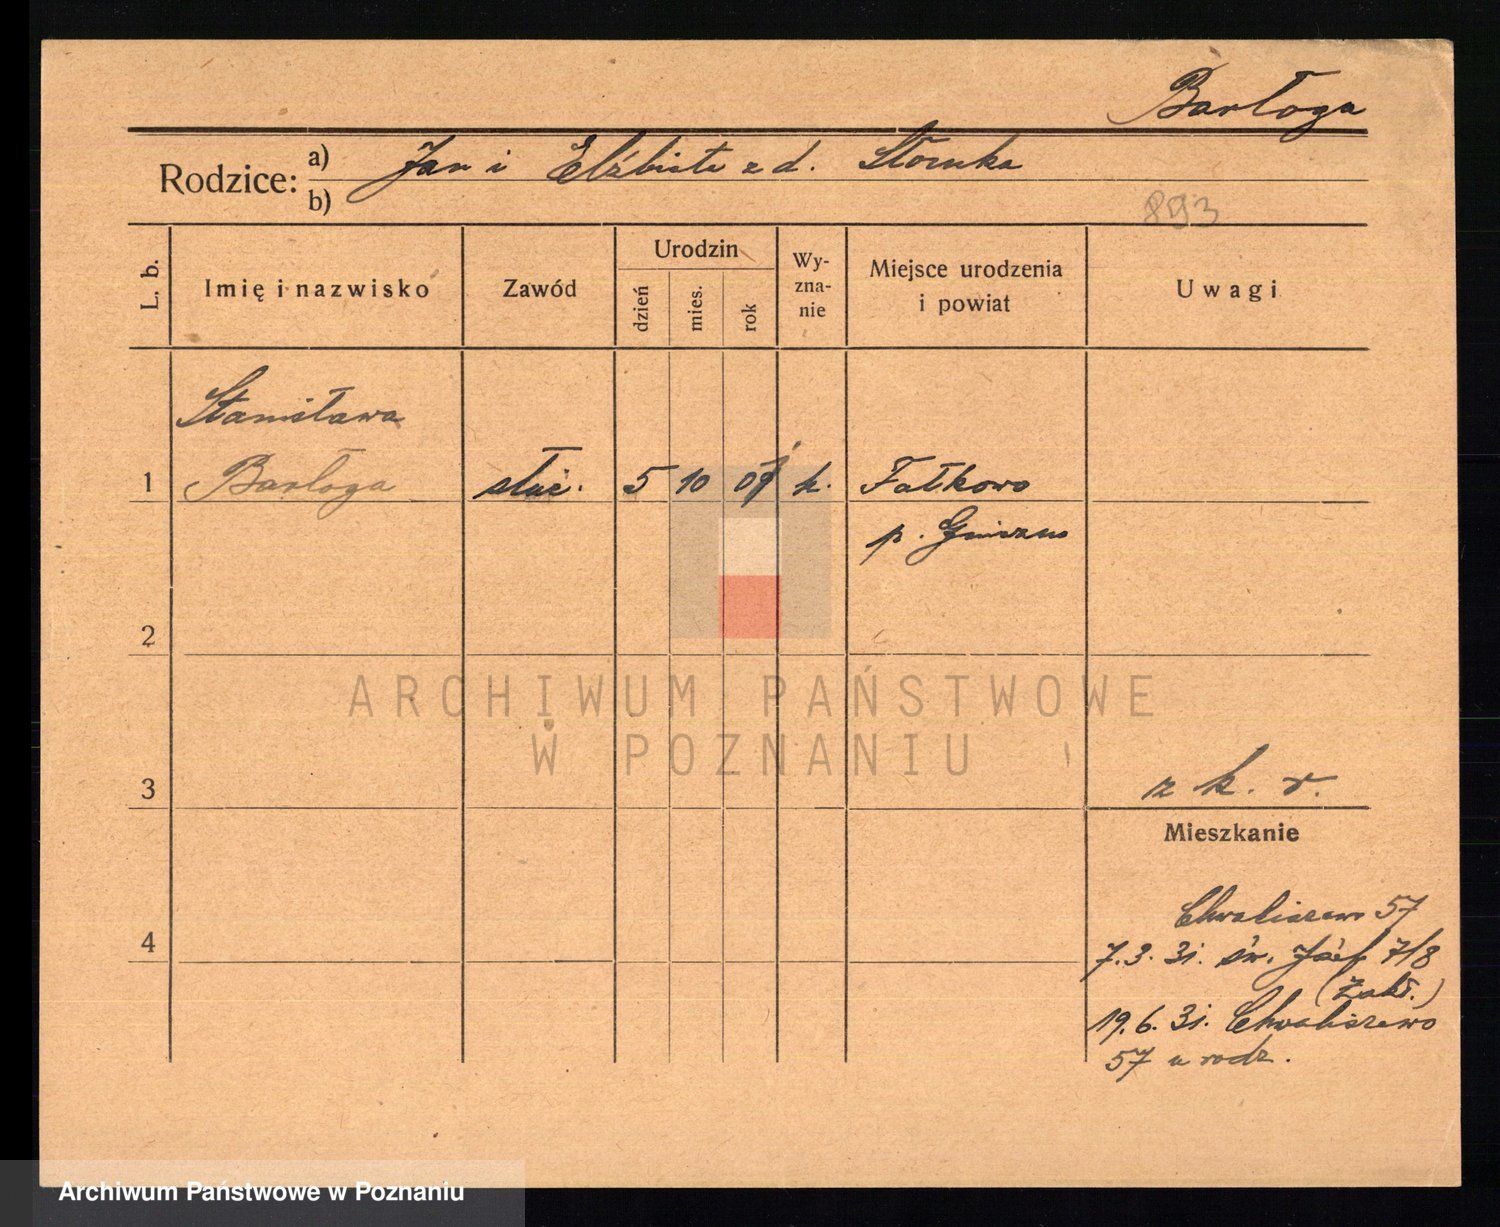 Barłoga
Rodzice: a) Jan i Elżbieta z d. Słomka
b)
893
L. b. Imię i nazwisko Zawód Urodzin dzień mies. rok Wy-zna-nie Miejsce urodzenia i powiat Uwagi
Stanisława
1 Barłoga służ. 5 10 09 k. Fałkowo
p. Gniezno
2
ARCHIWUM PAŃSTWOWE
W POZNANIU
3 z k. r.
Mieszkanie
Chwaliszewo 57
4 7.3.31. św. Józef 7/8
(Zakł.)
19.6.31. Chwaliszewo
57 u rodz.
Archiwum Państwowe w Poznaniu